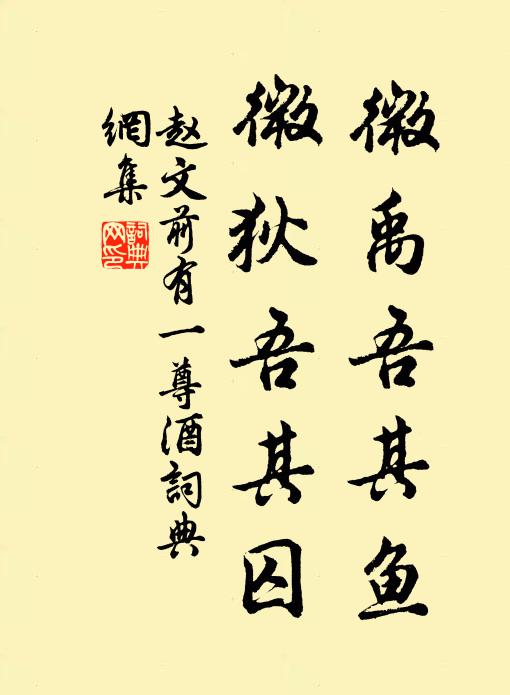 微禹吾其鱼
微狄吾其囚
赵文前有一尊酒詞典
網集
詞典
网印